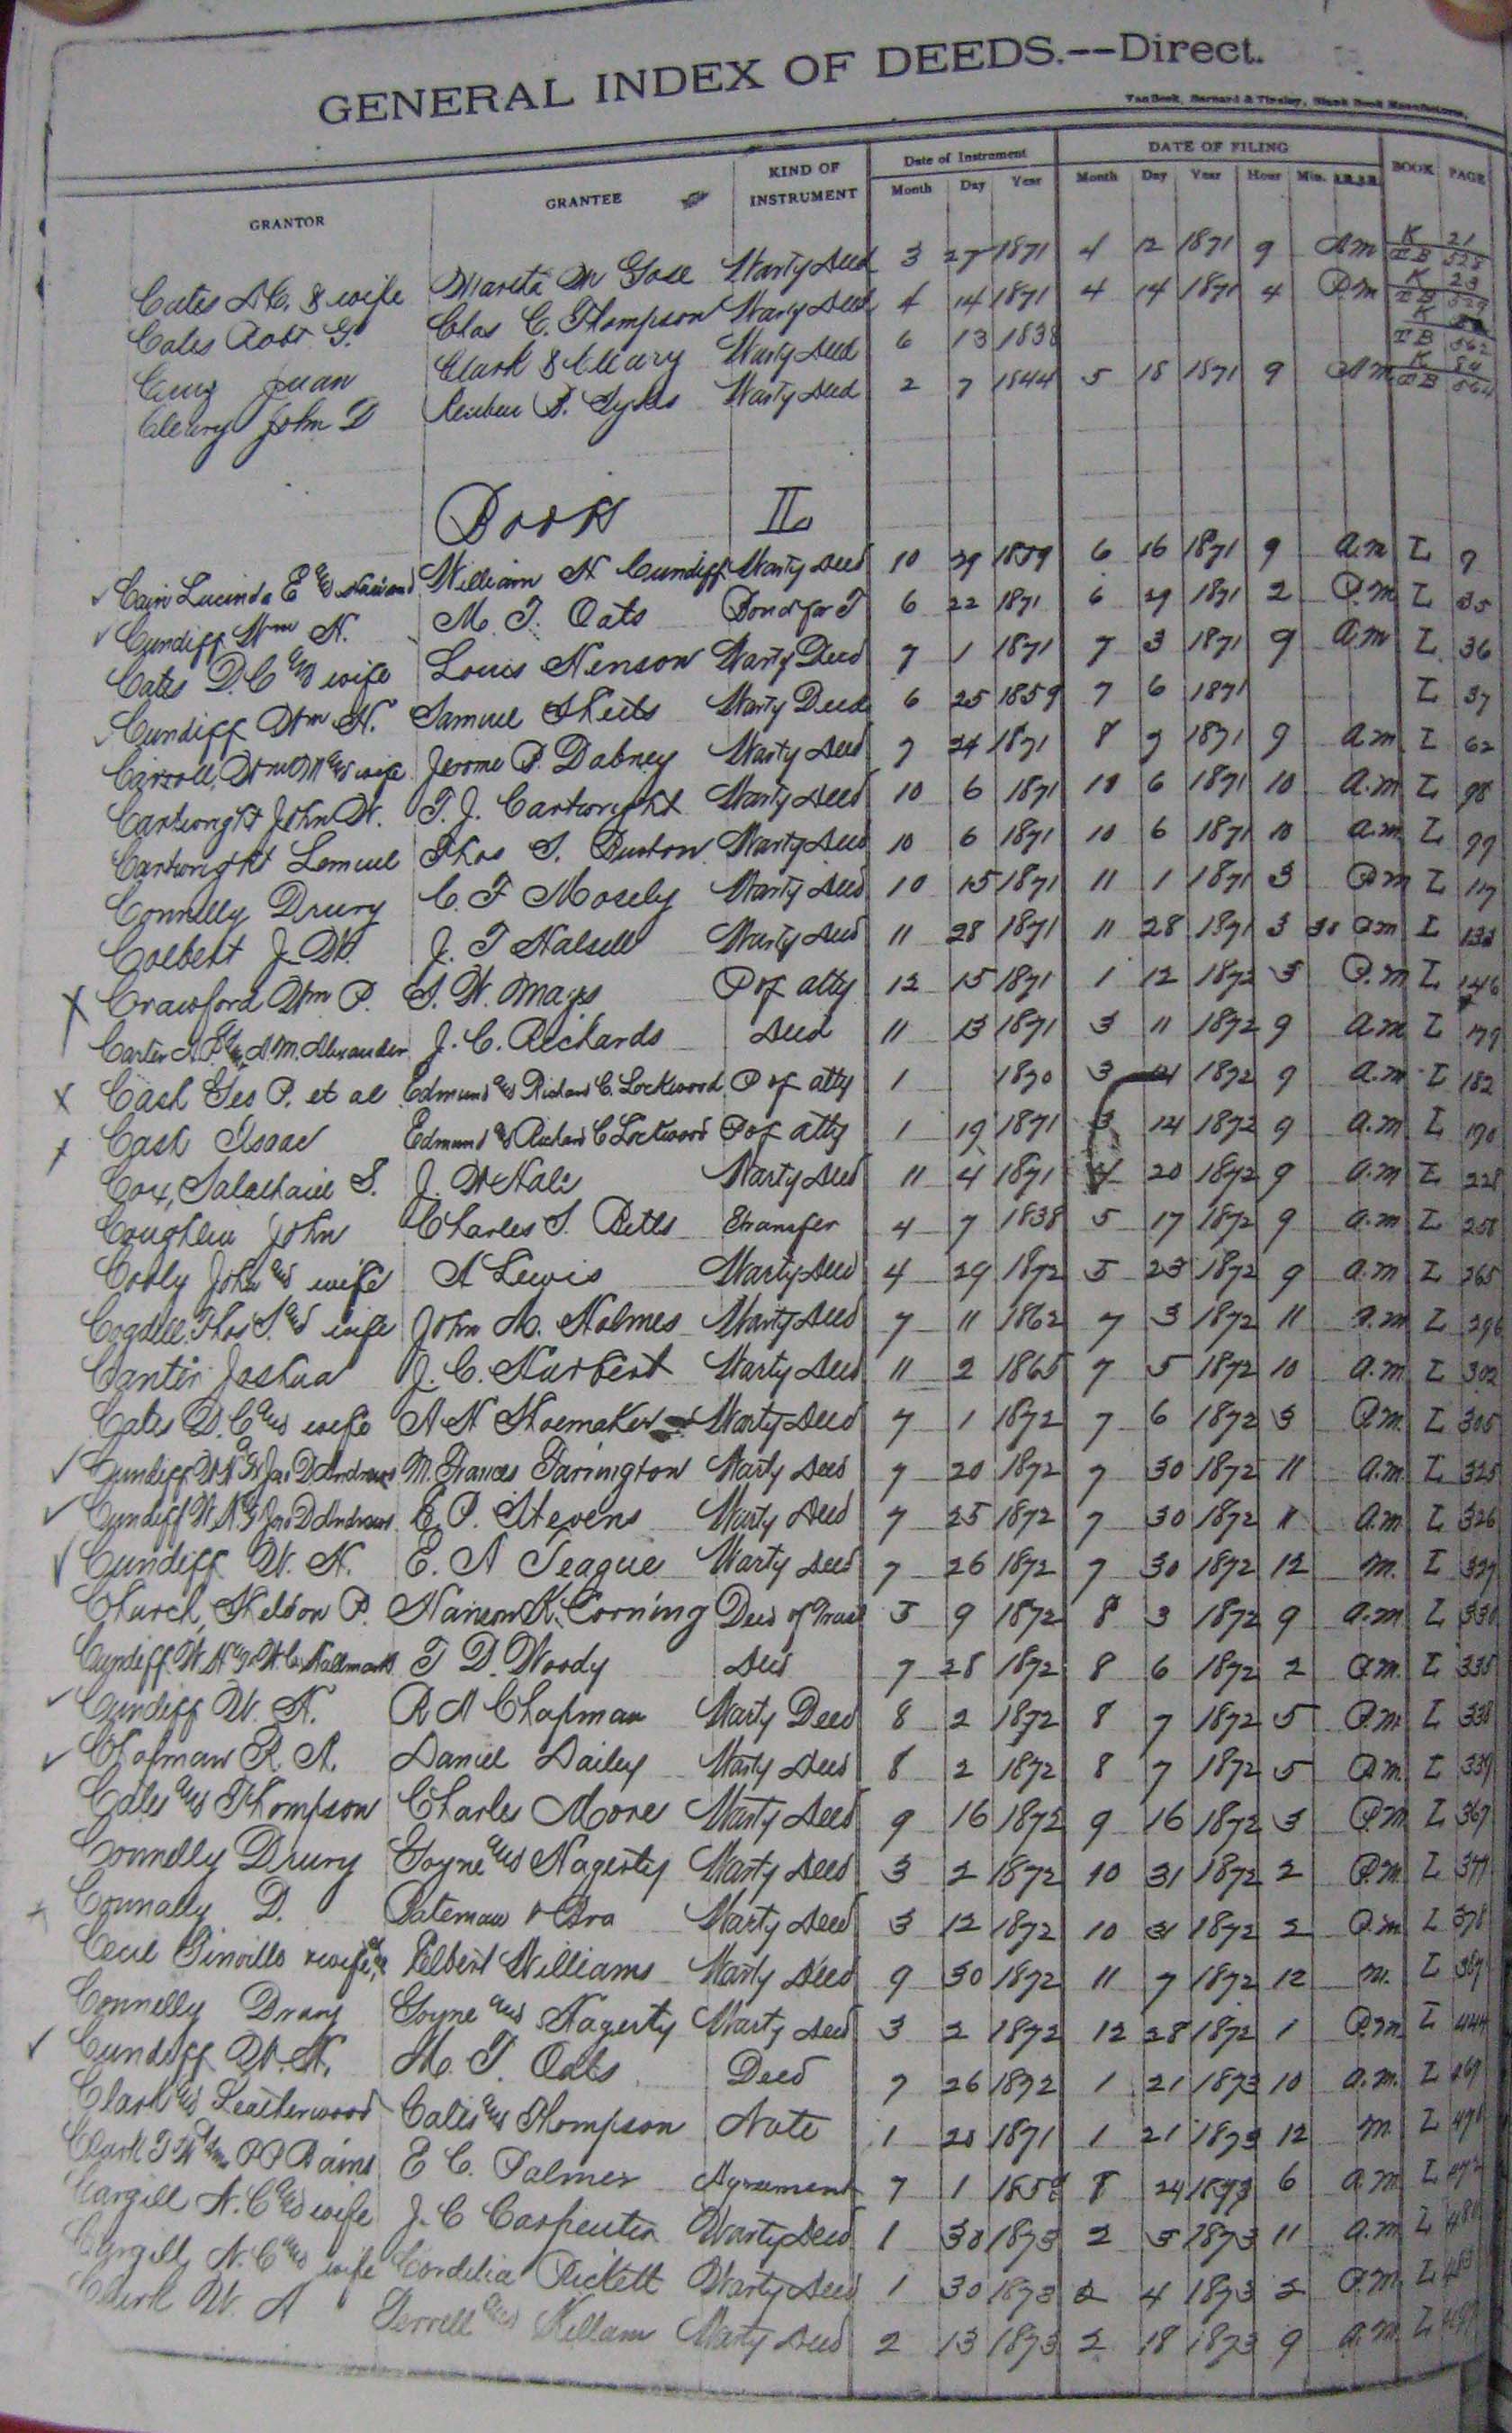 GENERAL INDEX OF DEEDS.--Direct.
GRANTOR GRANTEE KIND OF INSTRUMENT Date of Instrument DATE OF FILING BOOK PAGE
Month Day Year Month Day Year Hour Min.
Cates & wife Gose Warty Deed 3 27 1871 4 12 1871 9 Am K 21
Cates Robt G. Chas C. Thompson Warty Deed 4 14 1871 4 14 1871 4 P.m K 23
Cruz Juan Clark & Cleary Warty Deed 6 13 1838 K
Cleary John D Reuben B. Sykes Warty Deed 2 7 1844 5 18 1871 9 Am K
Book L
Cain Lucinda E and husband William H Cundiff Warty Deed 10 29 1859 6 16 1871 9 a.m L 7
Cundiff Wm H. M. T. Oats Bond for T 6 22 1871 6 29 1871 2 P.m L 35
Cates D. C and wife Louis Henson Warty Deed 7 1 1871 7 3 1871 9 a.m L 36
Cundiff Wm H. Samuel Sheets Warty Deed 6 25 1859 7 6 1871 L 37
Carroll, Wm and wife Jerome P. Dabney Warty Deed 7 24 1871 8 7 1871 9 a.m. L 62
Cartwright John W. T. J. Cartwright Warty Deed 10 6 1871 10 6 1871 10 a.m L 98
Cartwright Lemuel Thos S. Burton Warty Deed 10 6 1871 10 6 1871 10 a.m L 99
Connelly Drury C. F Mosely Warty Deed 10 15 1871 11 1 1871 3 P.m L 117
Colbert J. W. J. T Halsell Warty Deed 11 28 1871 11 28 1871 3 30 P.m L
Crawford Wm P. S. W. Mays P of atty 12 15 1871 1 12 1872 3 P.m L 146
Carter A. P. & A. M. Alexander J. C. Richards Deed 11 13 1871 3 11 1872 9 a.m L 179
Cash Geo P. et al Edmund and Richard C. Lockwood P of atty 1 1870 3 1872 9 a.m L 182
Cash Isaac Edmund and Richard C Lockwood P of atty 1 19 1871 3 14 1872 9 a.m L 190
Cox, Salathaiel S. J. W Hale Warty Deed 11 4 1871 4 20 1872 9 a.m L 228
Coughlin John Charles S. Betts Transfer 4 7 1838 5 17 1872 9 a.m L 258
Cooly John and wife A Lewis Warty Deed 4 29 1872 5 23 1872 9 a.m L 265
Cogdell, Thos S. and wife John M. Holmes Warty Deed 7 11 1862 7 3 1872 11 a.m L 296
Canter Joshua J. C. Hurbert Warty Deed 11 2 1865 7 5 1872 10 a.m. L 302
Cates D. C and wife A H Shoemaker Warty Deed 7 1 1872 7 6 1872 3 P.m. L 305
Cundiff W H & Jas D Andrews M. Frances Farington Warty Deed 7 20 1872 7 30 1872 11 a.m. L 325
Cundiff W. H. & Jas D Andrews E. P. Stevens Warty Deed 7 25 1872 7 30 1872 11 a.m. L 326
Cundiff W. H. E. A Teague Warty Deed 7 26 1872 7 30 1872 12 m. L 327
Church, Sheldon P. Hanson K. Corning Deed of Trust 5 9 1872 8 3 1872 9 a.m L 330
Cundiff W H T D. Woody Deed 7 28 1872 8 6 1872 2 P.m. L 335
Cundiff W. H. R A Chapman Warty Deed 8 2 1872 8 7 1872 5 P.m. L 338
Chapman R. A. Daniel Dailey Warty Deed 8 2 1872 8 7 1872 5 P.m. L 339
Cates and Thompson Charles Moore Warty Deed 9 16 1872 9 16 1872 3 P.m L 367
Connelly Drury Goyne and Hagerty Warty Deed 3 2 1872 10 31 1872 2 P.m. L 377
Connally D. Bateman & Bro Warty Deed 3 12 1872 10 31 1872 2 P.m L 378
Cecil & wife Elbert Williams Warty Deed 9 30 1872 11 7 1872 12 m. L
Connelly Drury Goyne and Hagerty Warty Deed 3 2 1872 12 28 1872 1 P.m L 444
Cundiff W. H. M. T. Oats Deed 7 26 1872 1 21 1873 10 a.m. L 469
Clark and Leatherwood Cates and Thompson Note 1 1871 1 21 1873 12 m. L 470
Clark E C. Palmer Agreement 7 1 8 24 1873 6 a.m L 472
Cargill N. C and wife J. C Carpenter Warty Deed 1 30 1873 2 3 1873 11 a.m L 480
Cargill N. C and wife Cordelia Pickett Warty Deed 1 30 1873 2 4 1873 2 P.m. L
Clark W A Terrell and Killam Warty Deed 2 13 1873 2 18 1873 9 a.m. L